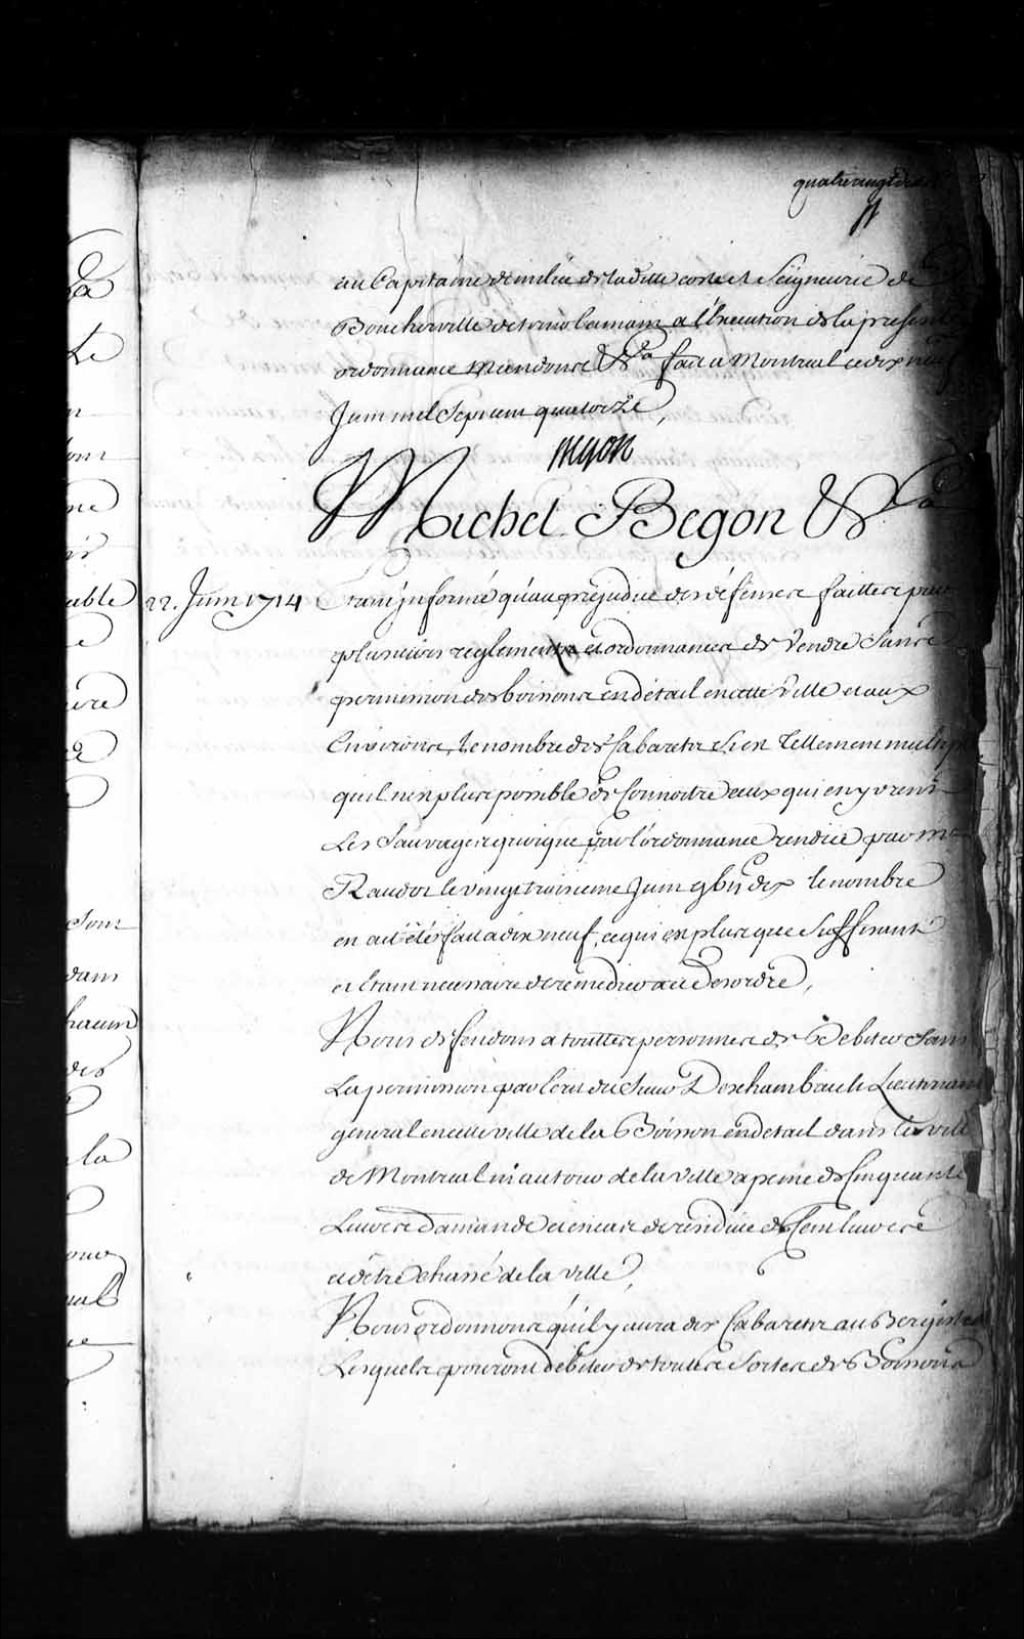 quatrevingt
au Capitaine de milice de ladite coste et Seigneurie de
Boucherville de tenir la main a l'Execution de la presente
ordonnance Mandons &ca fait a Montreal ce dix neuf
Juin mil Sept cent quatorze,
Begon
Michel Begon &ca
22. Juin 1714 Etant jnformé qu'au préjudice des défenses faittes par
plusieurs reglements et ordonnances de Vendre Sans
permission des boissons en détail en cette Ville et aux
Environs, le nombre des Cabarets s'est tellement multiplié
quil n'est plus possible de Connoitre ceux qui enyvrent
Les Sauvages quoique par l'ordonnance rendüe par Mr
Raudot le vingt troisieme Juin 17bij dix le nombre
en ait été fait a dix neuf, ce qui est plus que Suffisant
et Etant necessaire de remedier au Desordre,
Nous defendons a touttes personnes de Debiter Sans
La permission par Ecrit du Sieur Deschambault Lieutenant
general en cette ville de la Boisson en detail dans la ville
de Montreal ni autour de la ville a peine de Cinquante
Livres d'amande et en cas de recidive de Cent livres
et d'être chassé de la ville,
Nous ordonnons qu'il y aura dix Cabarets aubergistes
Lesquels pouront debiter de toutes Sortes de Boissons